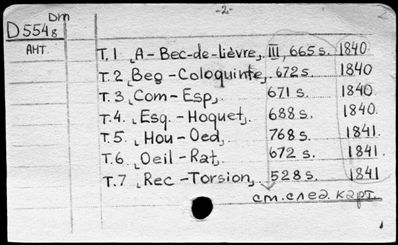 -2-
Dm
D5548
АНТ.
T.1 „A-Bec-de-lièvre„ III, 665 s. 1840
T.2 „Beg-Coloquinte„ 672 s. 1840
T.3 „Com-Esp„ 671 s. 1840
T.4. „Esq.-Hoquet„ 688 s. 1840.
T.5 „Hou-Oed„ 768 s. 1841.
T.6. „Oeil-Rat„ 672 s. 1841.
T.7 „Rec-Torsion„ 528 s. 1841
см. след. карт.